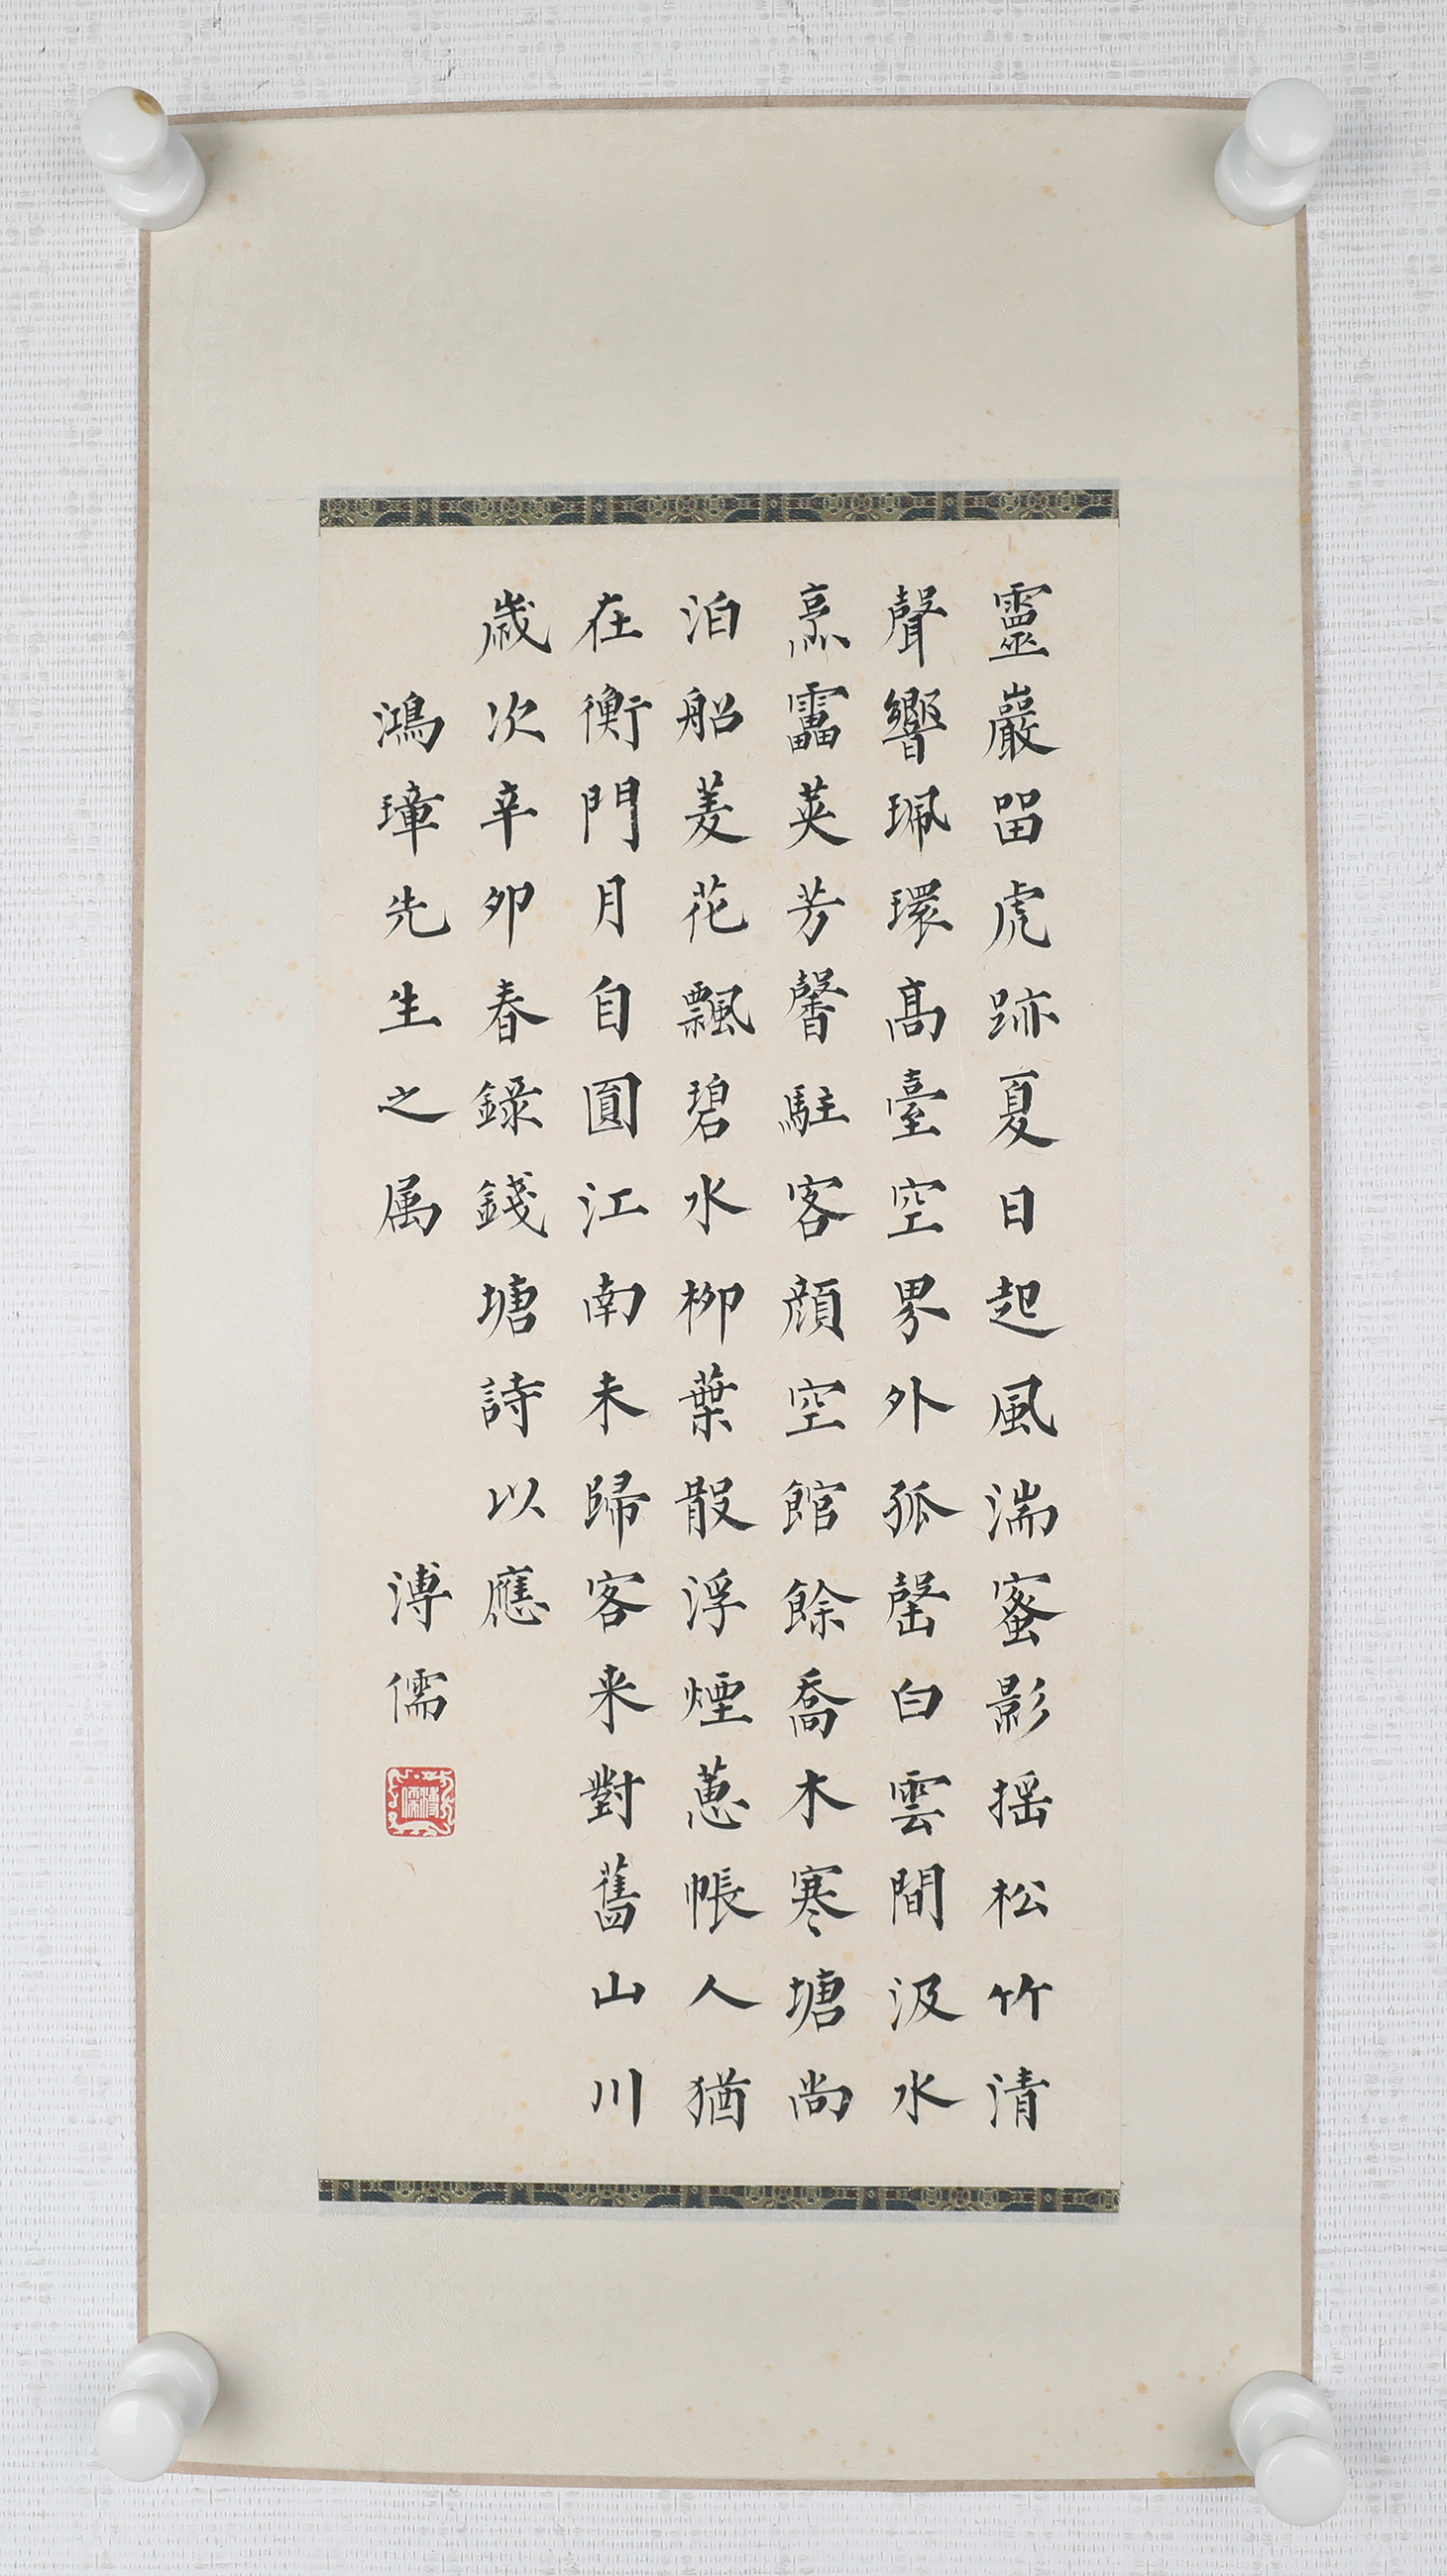 靈巖畱虎跡夏日起風湍蜜影揺松竹清
聲響珮環髙臺空界外孤磬白雲間汲水
烹靁莢芳馨駐客顔空館餘喬木寒塘尚
泊船菱花飄碧水柳葉散浮煙蕙帳人猶
在衡門月自圓江南未歸客来對舊山川
歲次辛卯春錄錢塘詩以應
鴻璋先生之属
溥儒
溥儒